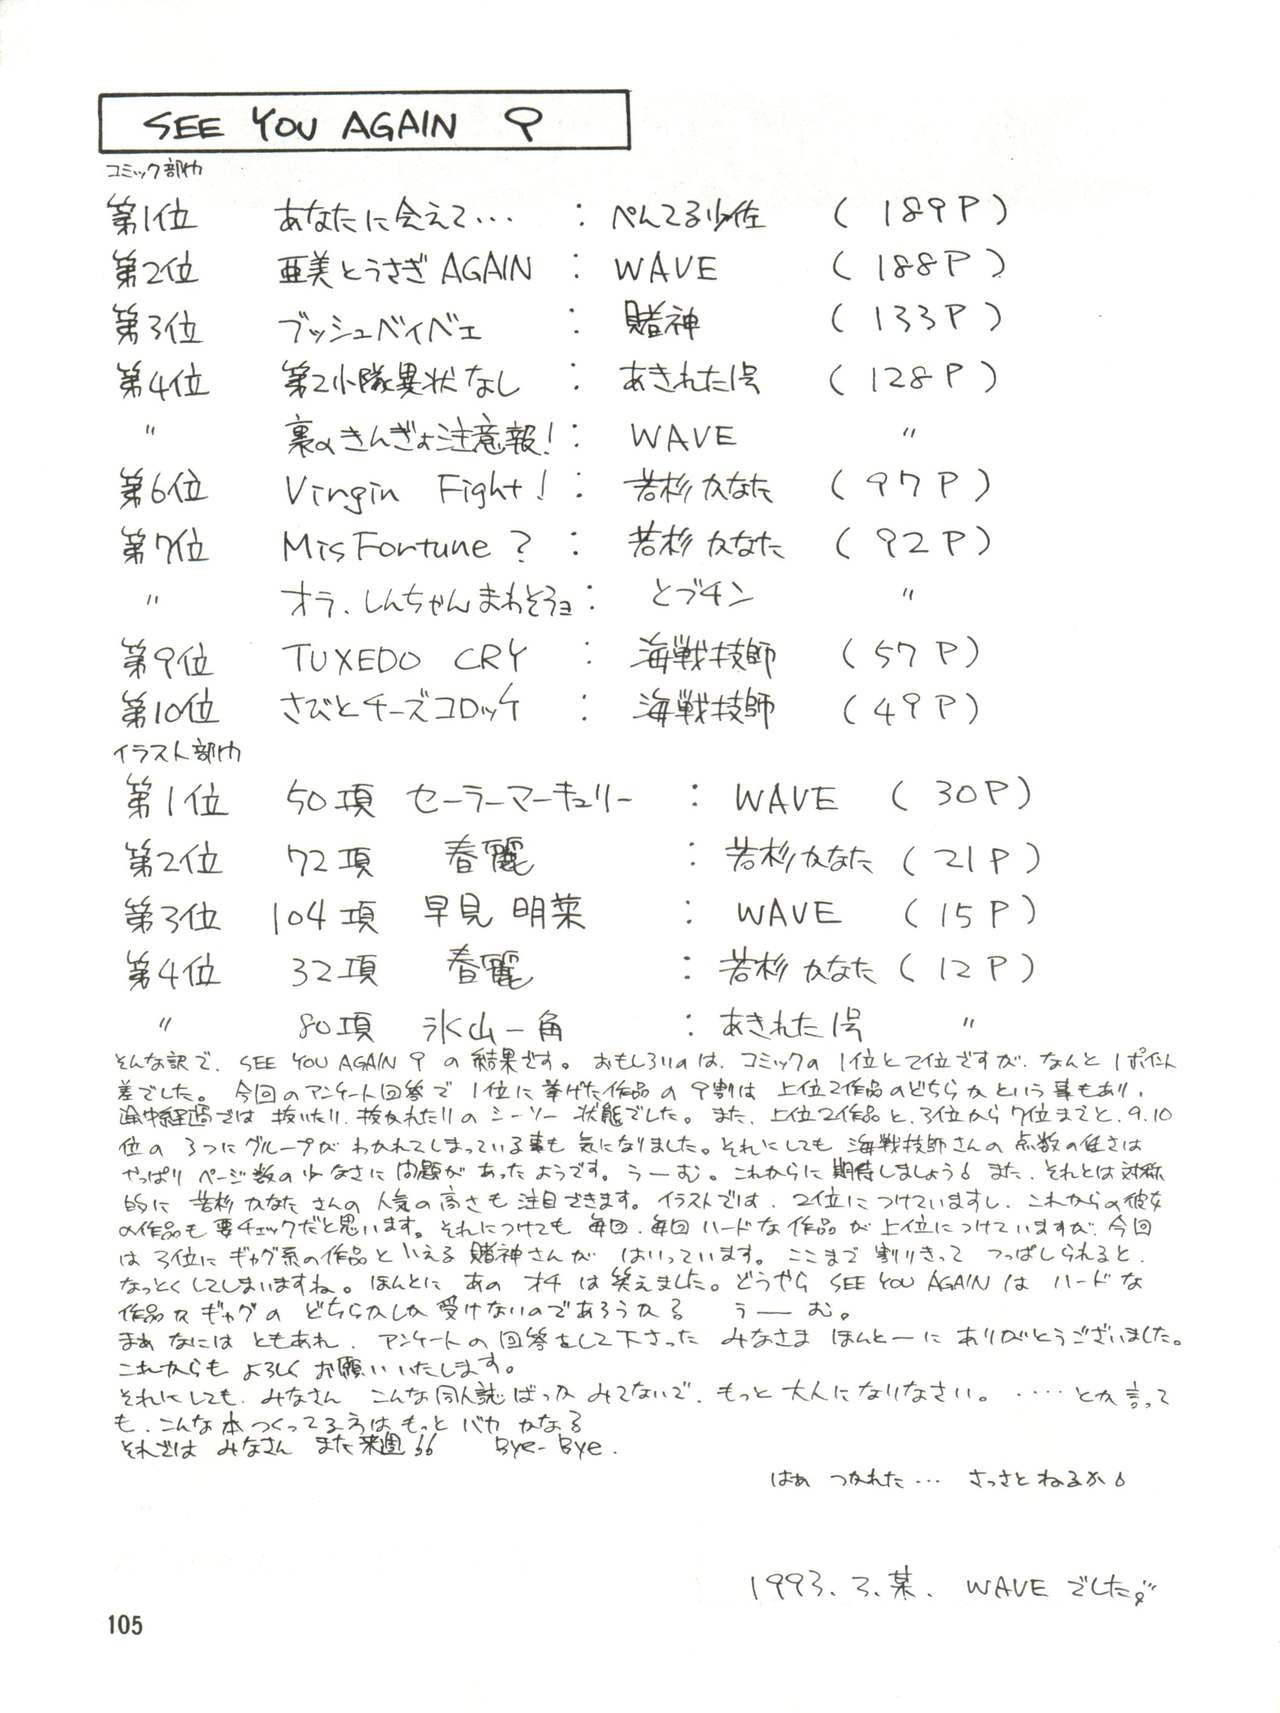 SEE YOU AGAIN 9
コミック部門
第1位 あなたに会えて… : ぺんてる少佐 (189P)
第2位 亜美とうさぎAGAIN : WAVE (188P)
第3位 ブッシュベイベェ : 賭神 (133P)
第4位 第2小隊異状なし : あきれた1号 (128P)
〃 裏のきんぎょ注意報! : WAVE 〃
第6位 Virgin Fight! : 若杉かなた (97P)
第7位 MisFortune? : 若杉かなた (92P)
〃 オラ、しんちゃんまわぞうョ : とブチン 〃
第9位 TUXEDO CRY : 海戦技師 (57P)
第10位 さびとチーズコロッケ : 海戦技師 (49P)
イラスト部門
第1位 50項 セーラーマーキュリー : WAVE (30P)
第2位 72項 春麗 : 若杉かなた (21P)
第3位 104項 早見 明菜 : WAVE (15P)
第4位 32項 春麗 : 若杉かなた (12P)
〃 80項 氷山一角 : あきれた1号 〃
そんな訳で、SEE YOU AGAIN 9 の結果です。おもしろいのは、コミックの1位と2位ですが、なんと1ポイント
差でした。今回のアンケート回答で1位に挙げた作品の9割は上位2作品のどちらかという事もあり、
途中経過では抜いたり、抜かれたりのシーソー状態でした。また、上位2作品と、3位から7位までと、9.10
位の3つにグループがわかれてしまっている事も気になりました。それにしても海戦技師さんの点数の低さは
やっぱりページ数の少なさに問題があったようです。うーむ。これからに期待しましょう! また、それとは対称
的に若杉かなたさんの人気の高さも注目できます。イラストでは、2位につけていますし、これからの彼女
の作品も要チェックだと思います。それにつけても毎回、毎回ハードな作品が上位につけていますが、今回
は3位にギャグ系の作品といえる賭神さんがはいっています。ここまで割りきってつっぱしられると、
なっとくしてしまいますね。ほんとにあのオチは笑えました。どうやらSEE YOU AGAINはハードな
作品かギャグのどちらかしか受けないのであろうか? うーむ。
まぁなにはともあれ、アンケートの回答をして下さったみなさまほんとーにありがとうございました。
これからもよろしくお願いいたします。
それにしても、みなさんこんな同人誌ばっかみてないで、もっと大人になりなさい。……とか言って
も、こんな本つくってる方はもっとバカかな?
それではみなさんまた来週!! Bye-Bye.
はぁつかれた… さっさとねるか!
1993.3.某. WAVEでした。
105